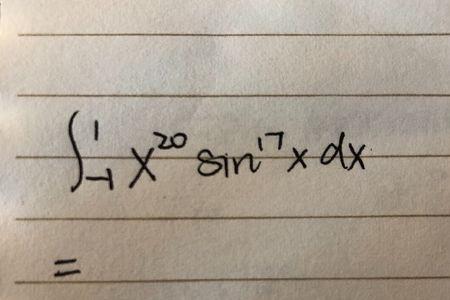 ∫₋₁¹ x²⁰ sin¹⁷ x dx
=